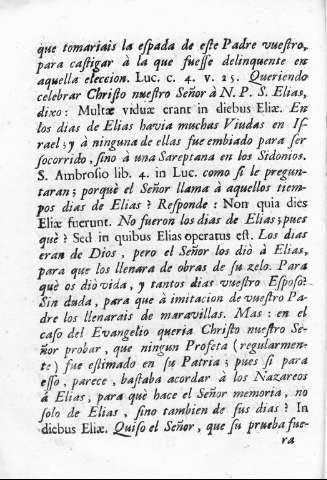 que tomariais la espada de este Padre vuestro,
para castigar à la que fuesse delinquente en
aquella eleccion. Luc. c. 4. v. 25. Queriendo
celebrar Christo nuestro Señor à N. P. S. Elias,
dixo: Multæ viduæ erant in diebus Eliæ. En
los dias de Elias havia muchas Viudas en Is-
rael; y à ninguna de ellas fue embiado para ser
socorrido, sino à una Sareptana en los Sidonios.
S. Ambrosio lib. 4. in Luc. como si le pregun-
taran; porquè el Señor llama à aquellos tiem-
pos dias de Elias? Responde: Non quia dies
Eliæ fuerunt. No fueron los dias de Elias; pues
què? Sed in quibus Elias operatus est. Los dias
eran de Dios, pero el Señor los diò à Elias,
para que los llenara de obras de su zelo. Para
què os diò vida, y tantos dias vuestro Esposo?
Sin duda, para que à imitacion de vuestro Pa-
dre los llenarais de maravillas. Mas: en el
caso del Evangelio queria Christo nuestro Se-
ñor probar, que ningun Profeta (regularmen-
te) fue estimado en su Patria; pues si para
esso, parece, bastaba acordar à los Nazareos
à Elias, para què hace el Señor memoria, no
solo de Elias, sino tambien de sus dias? In
diebus Eliæ. Quiso el Señor, que su prueba fue-
ra